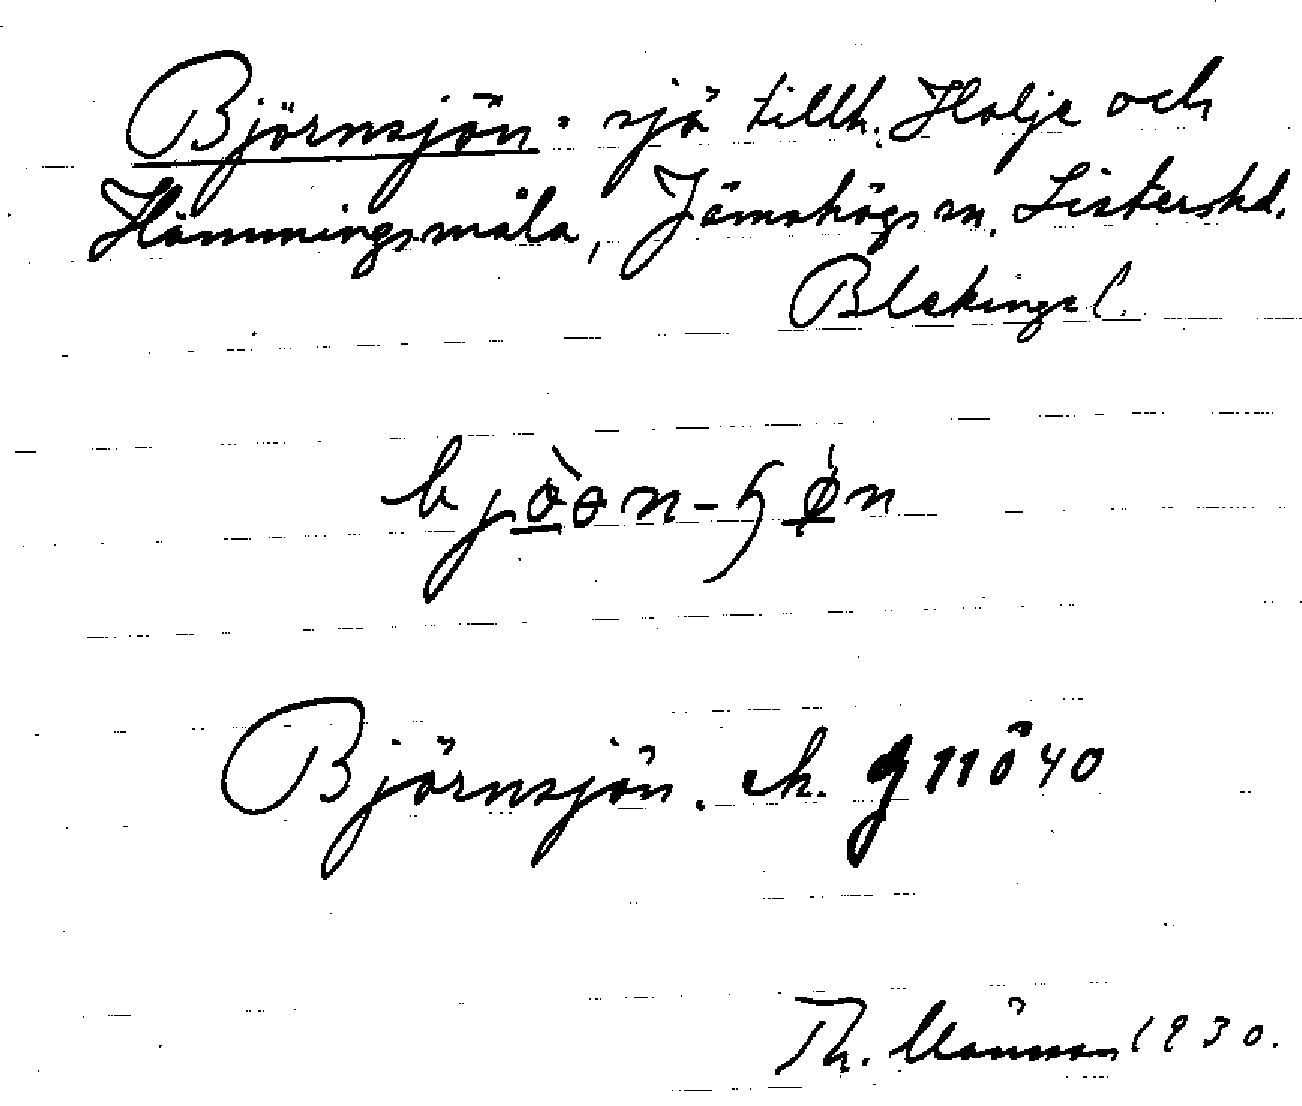 Björnsjön: sjö tillh. Holje och
Hämmingsmåla, Jämshögs sn. Listers hd.
Blekinge l.
Björnsjön. ek. g 11 ö 40
Th. 1930.